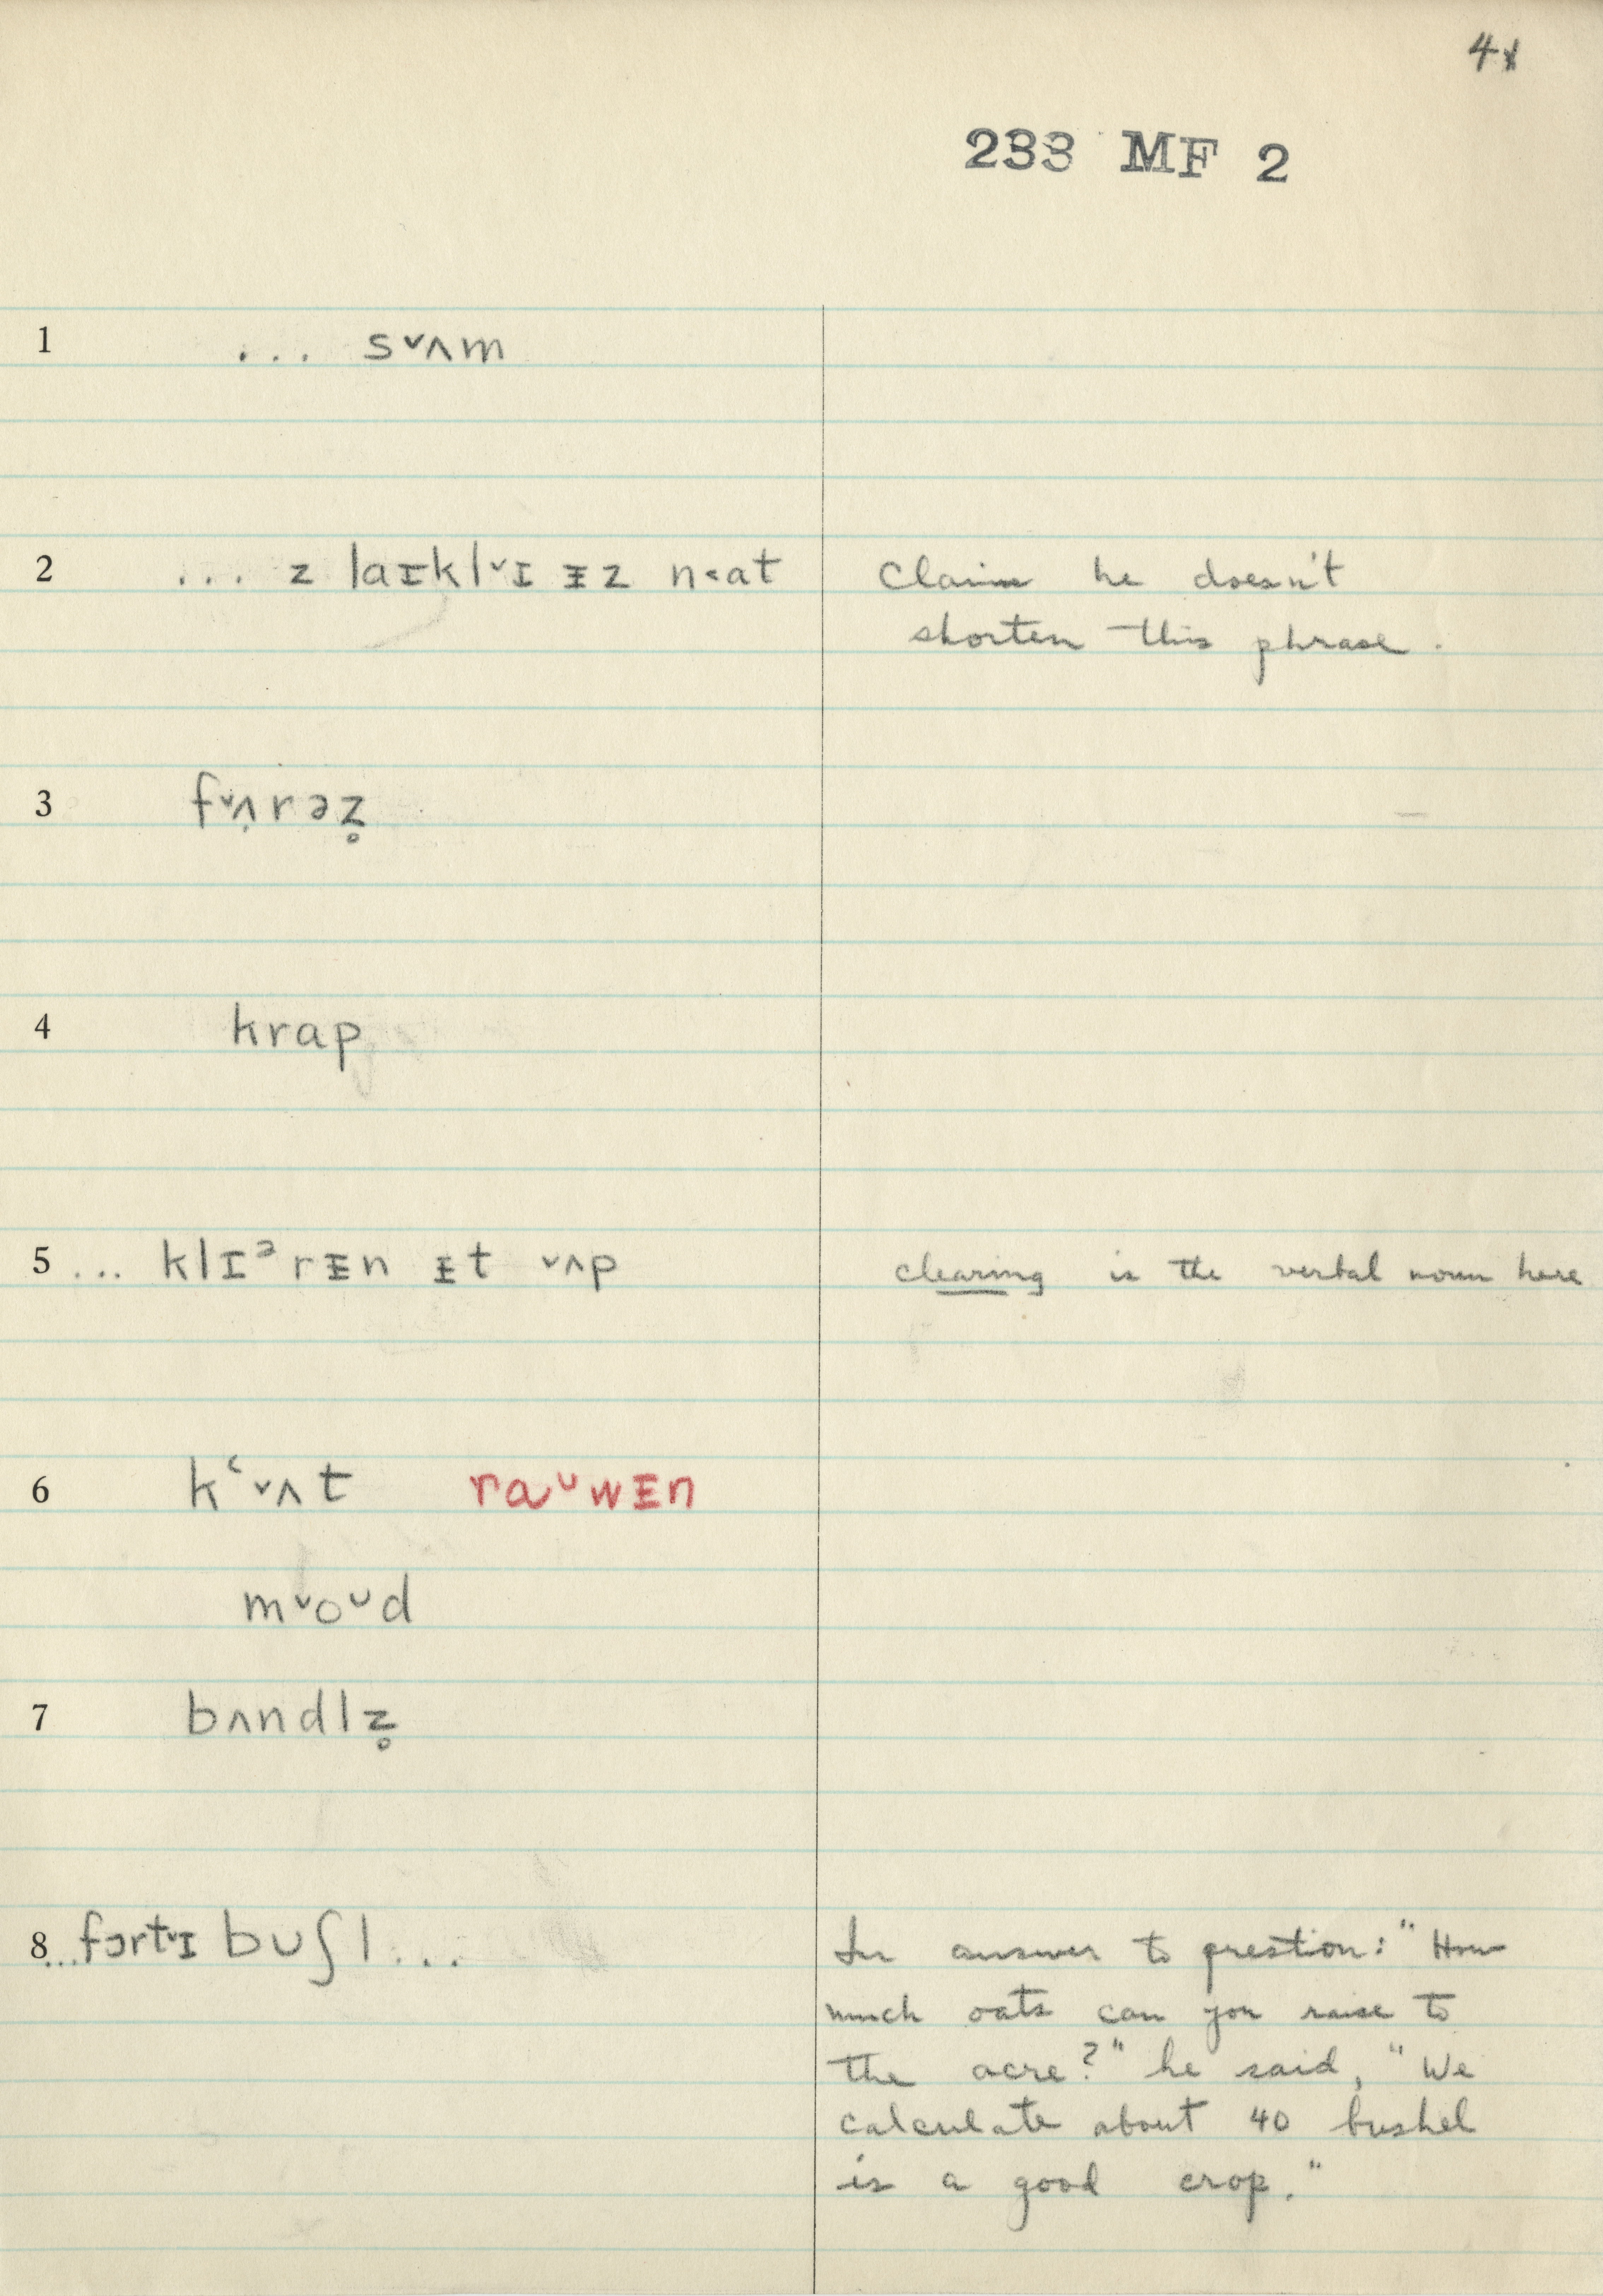 41
233 MF 2
1 ... s˅ʌm
2 ... z laɪkl˅ɪ ᵻz n˂at Claims he doesn't
shorten this phrase.
3 f˅ʌ̣rəz̥
4 krap
5 ... klɪᵊrᵻn ᵻt ˅ʌp clearing is the verbal noun here
6 kʿ˅ʌt raᶸwᵻn
m˅oᶸd
7 bʌndlz̥
8 ... fɔrt˅ɪ bʊʃl ... In answer to question: "How
much oats can you raise to
the acre?" he said, "We
calculate about 40 bushel
is a good crop."